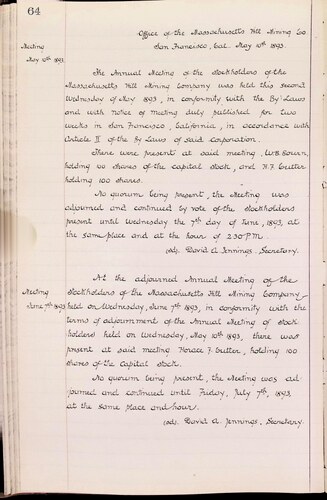 64
Office of the Massachusetts Hill Mining Co
San Francisco, Cal. May 10th 1893.
Meeting
May 10th 1893
The Annual Meeting of the Stockholders of the
Massachusetts Hill Mining Company was held this second
Wednesday of May 1893, in conformity with the By Laws
and with notice of meeting duly published for two
weeks in San Francisco, California, in accordance with
Article II of the By Laws of said corporation.
There were present at said meeting, W.B. Bourn,
holding 100 shares of the capital stock, and H.F. Cutter
holding 100 shares.
No quorum being present, the Meeting was
adjourned and continued by vote of the stockholders
present until Wednesday the 7th day of June, 1893, at
the same place and at the hour of 2.30 P.M.
David A. Jennings, Secretary.
Meeting
June 7th 1893
At the adjourned Annual Meeting of the
Stockholders of the Massachusetts Hill Mining Company
held on Wednesday, June 7th 1893, in conformity with the
terms of adjournment of the Annual Meeting of Stock
holders held on Wednesday, May 10th 1893, there was
present at said meeting Horace F. Cutter, holding 100
shares of the capital stock.
No quorum being present, the Meeting was ad
journed and continued until Friday, July 7th, 1893,
at the same place and hour.
David A. Jennings, Secretary.